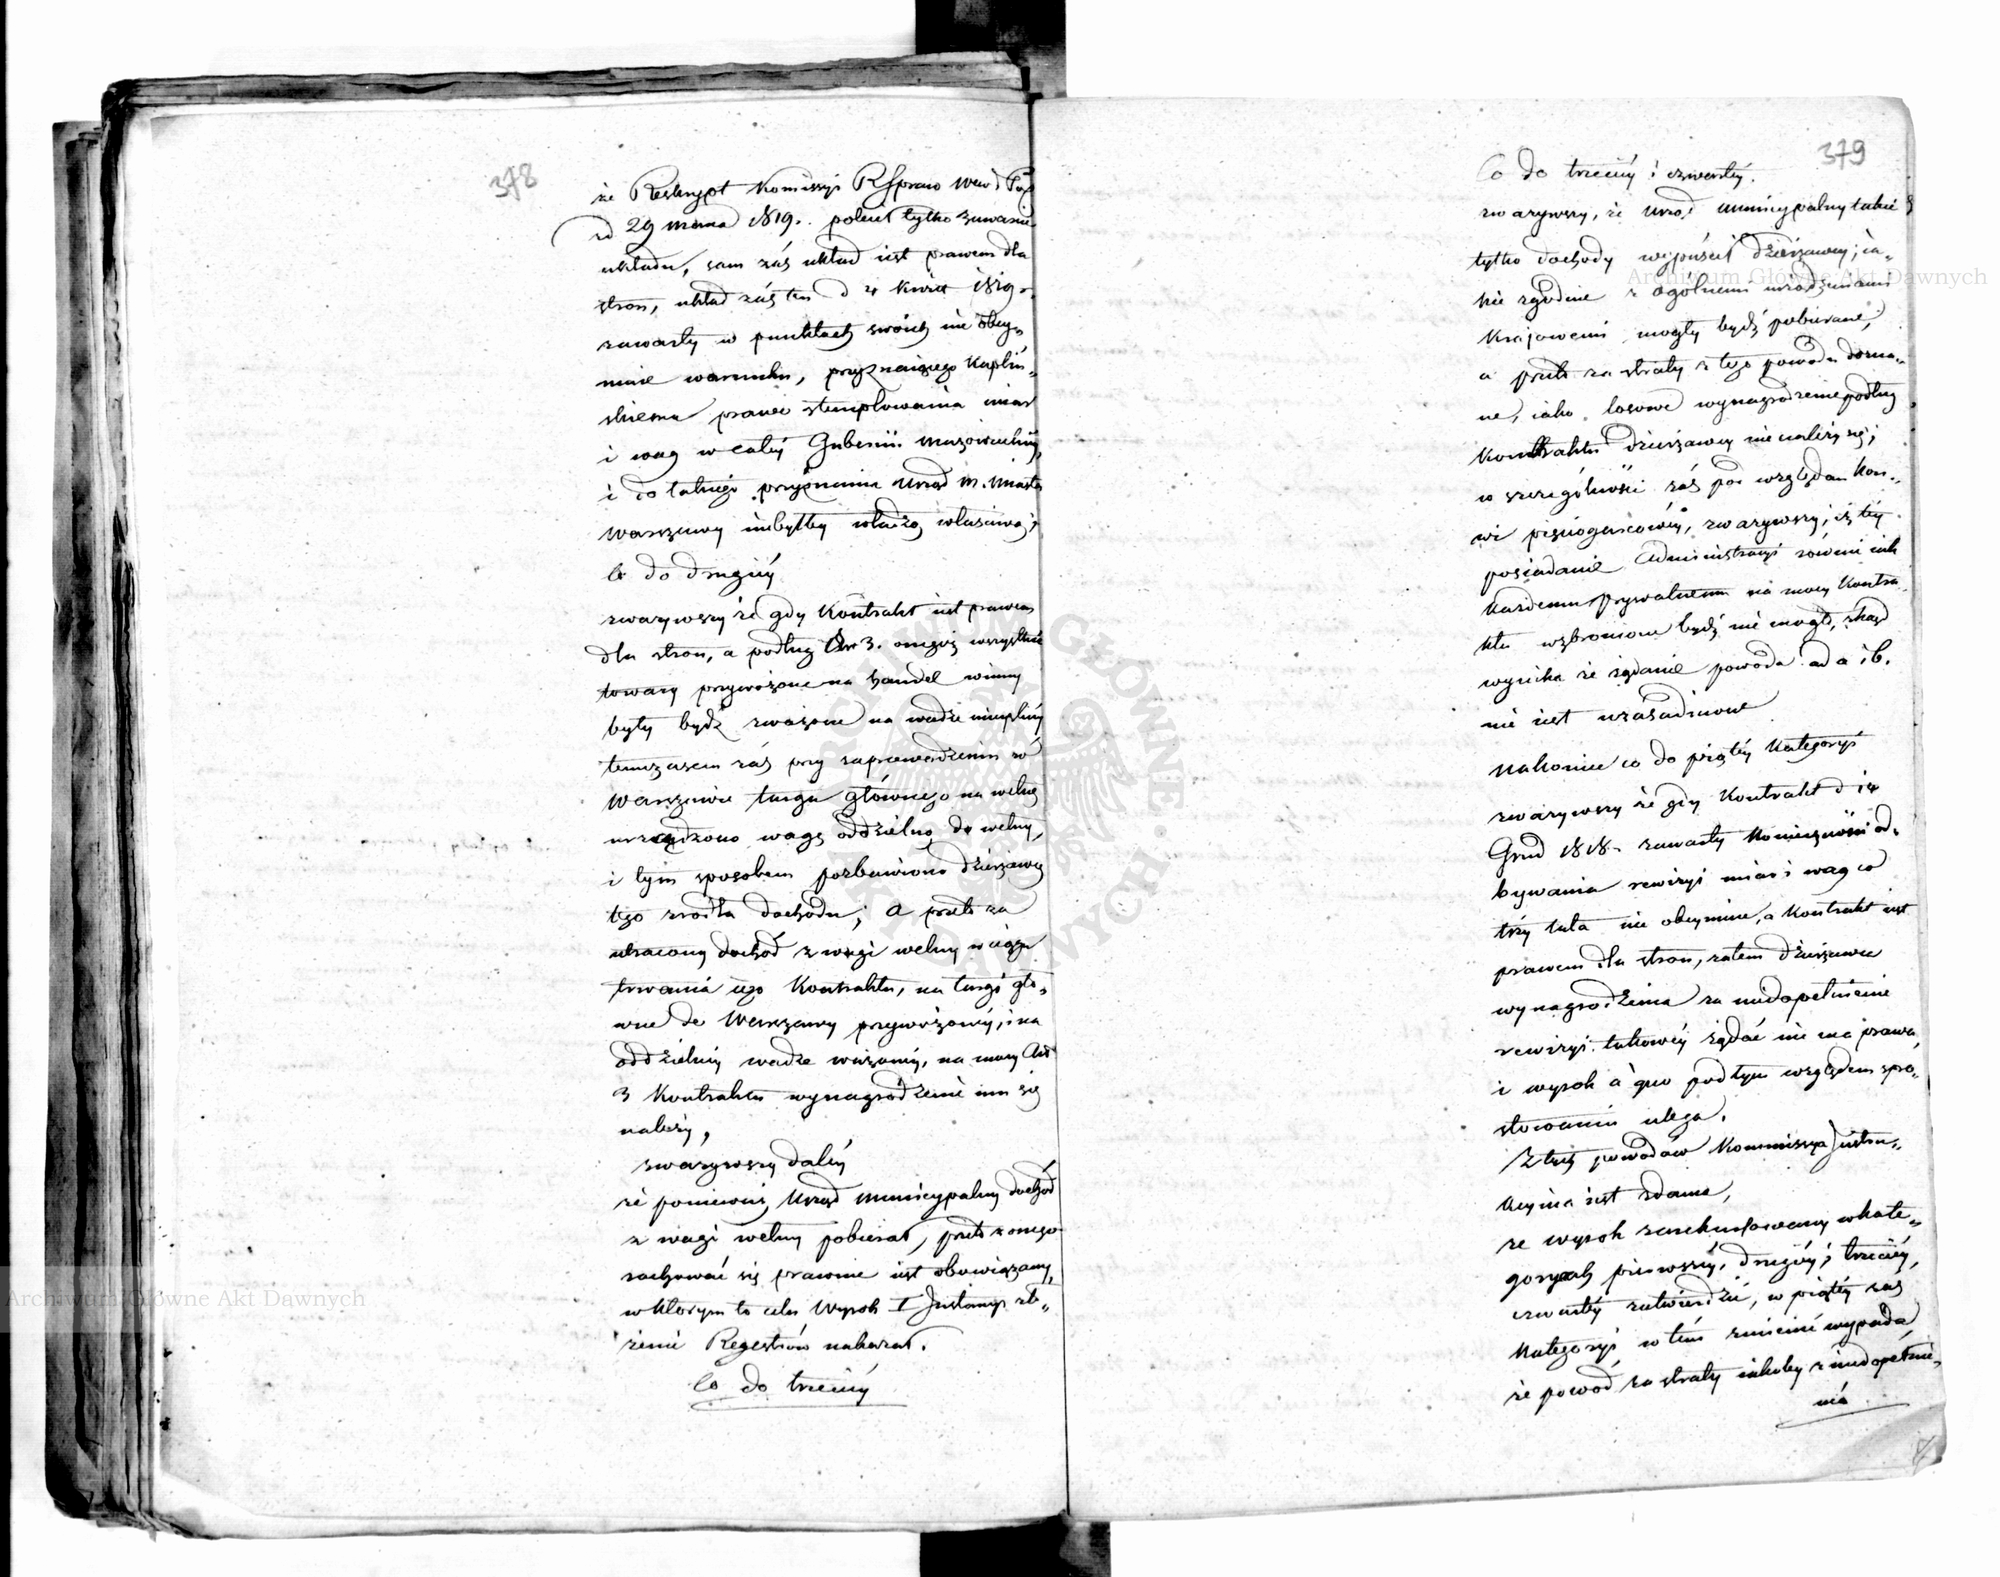 378
że Reskrypt Kommissyi R Spraw Wew i Pol
d 29 marca 1819. polecił tylko zawarcie
układu, sam zaś układ iest prawem dla
stron, układ zaś ten d 4 Kwiet 1819 r.
zawarty w punktach swoich nie obey-
muie warunku, przyznaiącego Kapliń-
skiemu prawo stemplowania miar
i wag w całey Gubernii Mazowieckiey,
i do takiego przyznania Urząd M. Miasta
Warszawy niebyłby władzą właściwą;
Co do drugiey
zważywszy że gdy Kontrakt iest prawem
dla stron, a podług Ar 3. onegoż wszystkie
towary przywożone na handel winny
były bydź zważone na wadze mieyskiey
tymczasem zaś przy zaprowadzeniu w
Warszawie targu głównego na wełnę
urządzono wagę oddzielną do wełny,
i tym sposobem pozbawiono dzierżawcę
tego zrodła dochodu; a przeto za
utracony dochod z wagi wełny w ciągu
trwania iego Kontraktu, na targi głó-
wne do Warszawy przywożoney, i na
oddzielney wadze ważoney, na mocy Art
3 Kontraktu wynagrodzenie mu się
należy,
zważywszy daley
że ponieważ Urząd Municypalny dochód
z wagi wełny pobierał, przeto z onego
rachować się prawnie iest obowiązany,
w ktorym to celu Wyrok I Instancyi zło-
żenie Regestrów nakazał.
Co do trzeciey
379
Co do trzeciey i czwartey.
zważywszy, że Urząd Municypalny takie
tylko dochody wypuścił Dzierżawcy; ia-
kie zgodnie z ogolnemi urządzeniami
Kraiowemi mogły bydź pobierane,
a przeto za straty z tego powodu dozna-
ne, iako losowe wynagrodzenie podług
Kontraktu Dzierżawcy nie należy się;
w szczególności zaś pod względem kon-
wi pięciogarcowey, zważywszy, iż tey
posiadanie Administracyi równie iak
każdemu prywatnemu na mocy Kontra-
ktu wzbronione bydź nie mogło, zkąd
wynika że żądanie powoda ad a i b.
nie iest uzasadnione
Nakoniec co do piątey Kategoryi
zważywszy że gdy Kontrakt d 14
Grud 1818 r. zawarty konieczności od-
bywania rewizyi miar i wag co
trzy lata nie obeymuie, a Kontrakt iest
prawem dla stron, zatem Dzierżawca
wynagrodzenia za niedopełnienie
rewizyi takowey żądać nie ma prawa,
i wyrok à quo pod tym względem spro-
stowaniu ulega.
Z tych powodów Kommissya Instru-
kcyina iest zdania,
że wyrok zarekursowany w kate-
goryach pierwszey, drugiey, i trzeciey,
czwartey zatwierdzić, w piątey zaś
Kategoryi w tem zmienić wypada
że powod za straty iakoby z niedopełnie-
nia